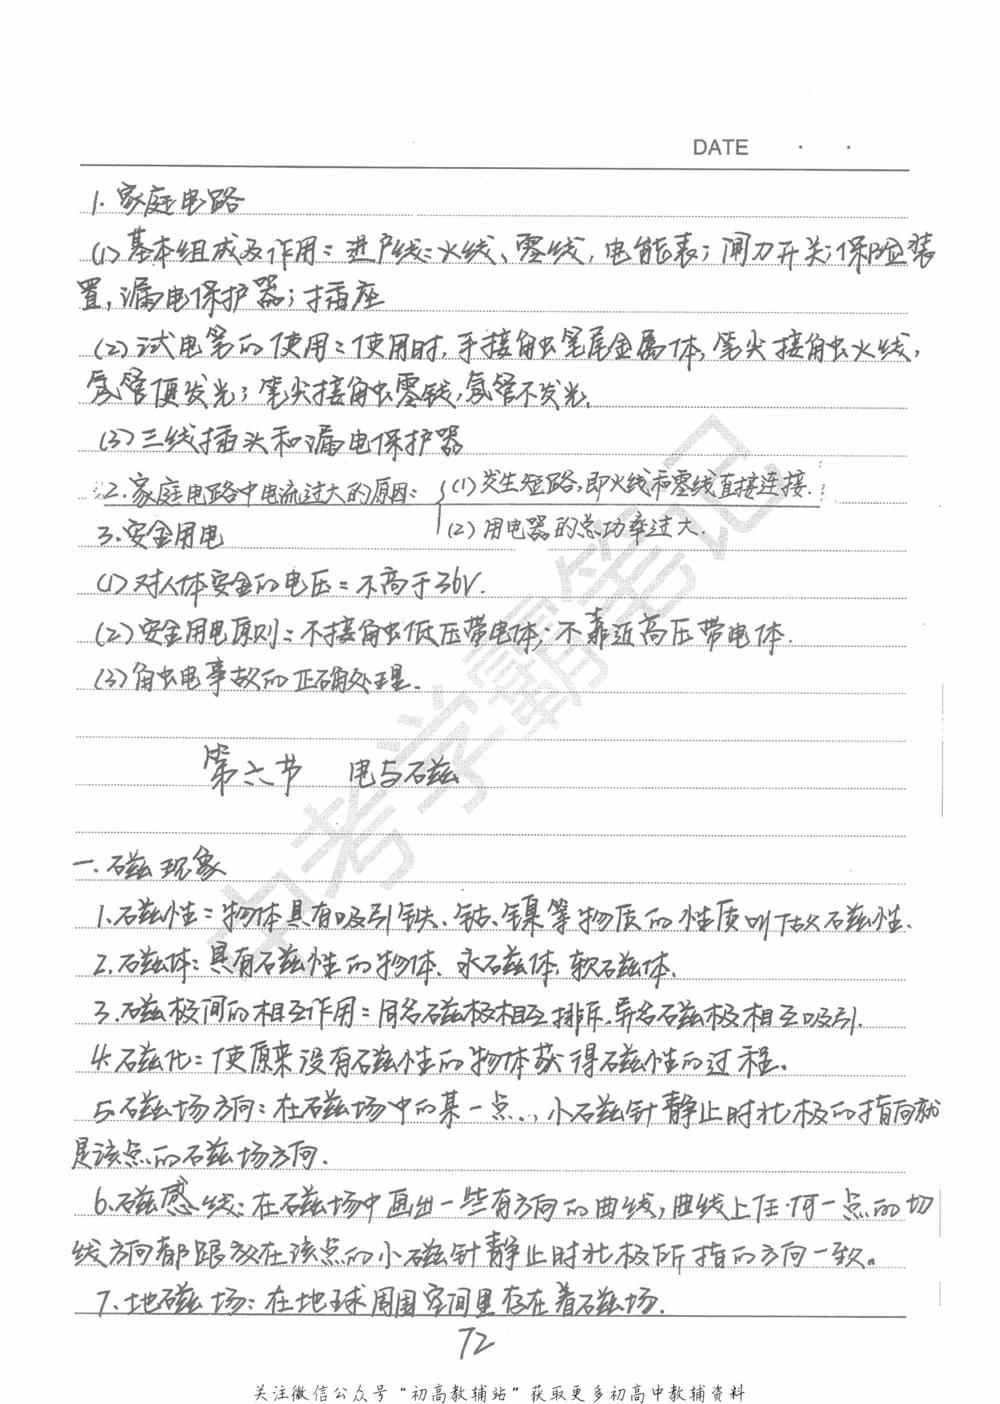 DATE · ·
1. 家庭电路
(1) 基本组成及作用：进户线：火线、零线，电能表；闸刀开关；保险装
置，漏电保护器；插座
(2) 试电笔的使用：使用时，手接触笔尾金属体，笔尖接触火线，
氖管便发光；笔尖接触零线，氖管不发光。
(3) 三线插头和漏电保护器
2. 家庭电路中电流过大的原因：(1) 发生短路，即火线和零线直接连接.
(2) 用电器的总功率过大.
3. 安全用电
(1) 对人体安全的电压：不高于36V.
(2) 安全用电原则：不接触低压带电体；不靠近高压带电体.
(3) 触电事故的正确处理.
第六节 电与磁
一. 磁现象
1. 磁性：物体具有吸引铁、钴、镍等物质的性质叫做磁性.
2. 磁体：具有磁性的物体. 永磁体, 软磁体.
3. 磁极间的相互作用：同名磁极相互排斥. 异名磁极相互吸引.
4. 磁化：使原来没有磁性的物体获得磁性的过程。
5. 磁场方向：在磁场中的某一点., 小磁针静止时北极的指向就
是该点的磁场方向.
6. 磁感线：在磁场中画出一些有方向的曲线，曲线上任何一点的切
线方向都跟放在该点的小磁针静止时北极所指的方向一致。
7. 地磁场：在地球周围空间里存在着磁场.
72
关注微信公众号“初高教辅站”获取更多初高中教辅资料
中考学霸笔记